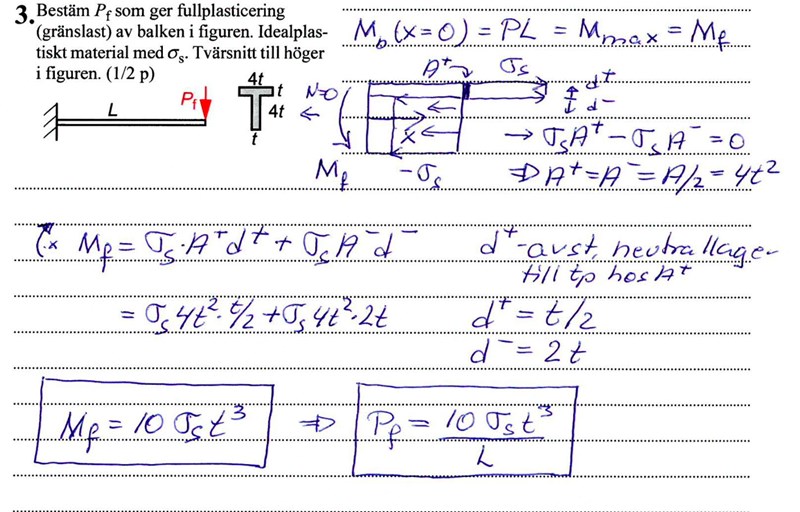 3. Bestäm P_f som ger fullplasticering
(gränslast) av balken i figuren. Idealplas-
tiskt material med σ_s. Tvärsnitt till höger
i figuren. (1/2 p)
M_b(x=0) = PL = M_max = M_f
P_f
L
4t
t
4t
t
N=0
A⁺
σ_s
d⁺
d⁻
x
M_f
-σ_s
→ σ_s A⁺ - σ_s A⁻ = 0
⇒ A⁺ = A⁻ = A/2 = 4t²
x M_f = σ_s · A⁺d⁺ + σ_s A⁻d⁻
d⁺ - avst, neutrallage-
till tp hos A⁺
= σ_s 4t² · t/2 + σ_s 4t² · 2t
d⁺ = t/2
d⁻ = 2t
M_f = 10 σ_s t³ ⇒ P_f = 10 σ_s t³ / L